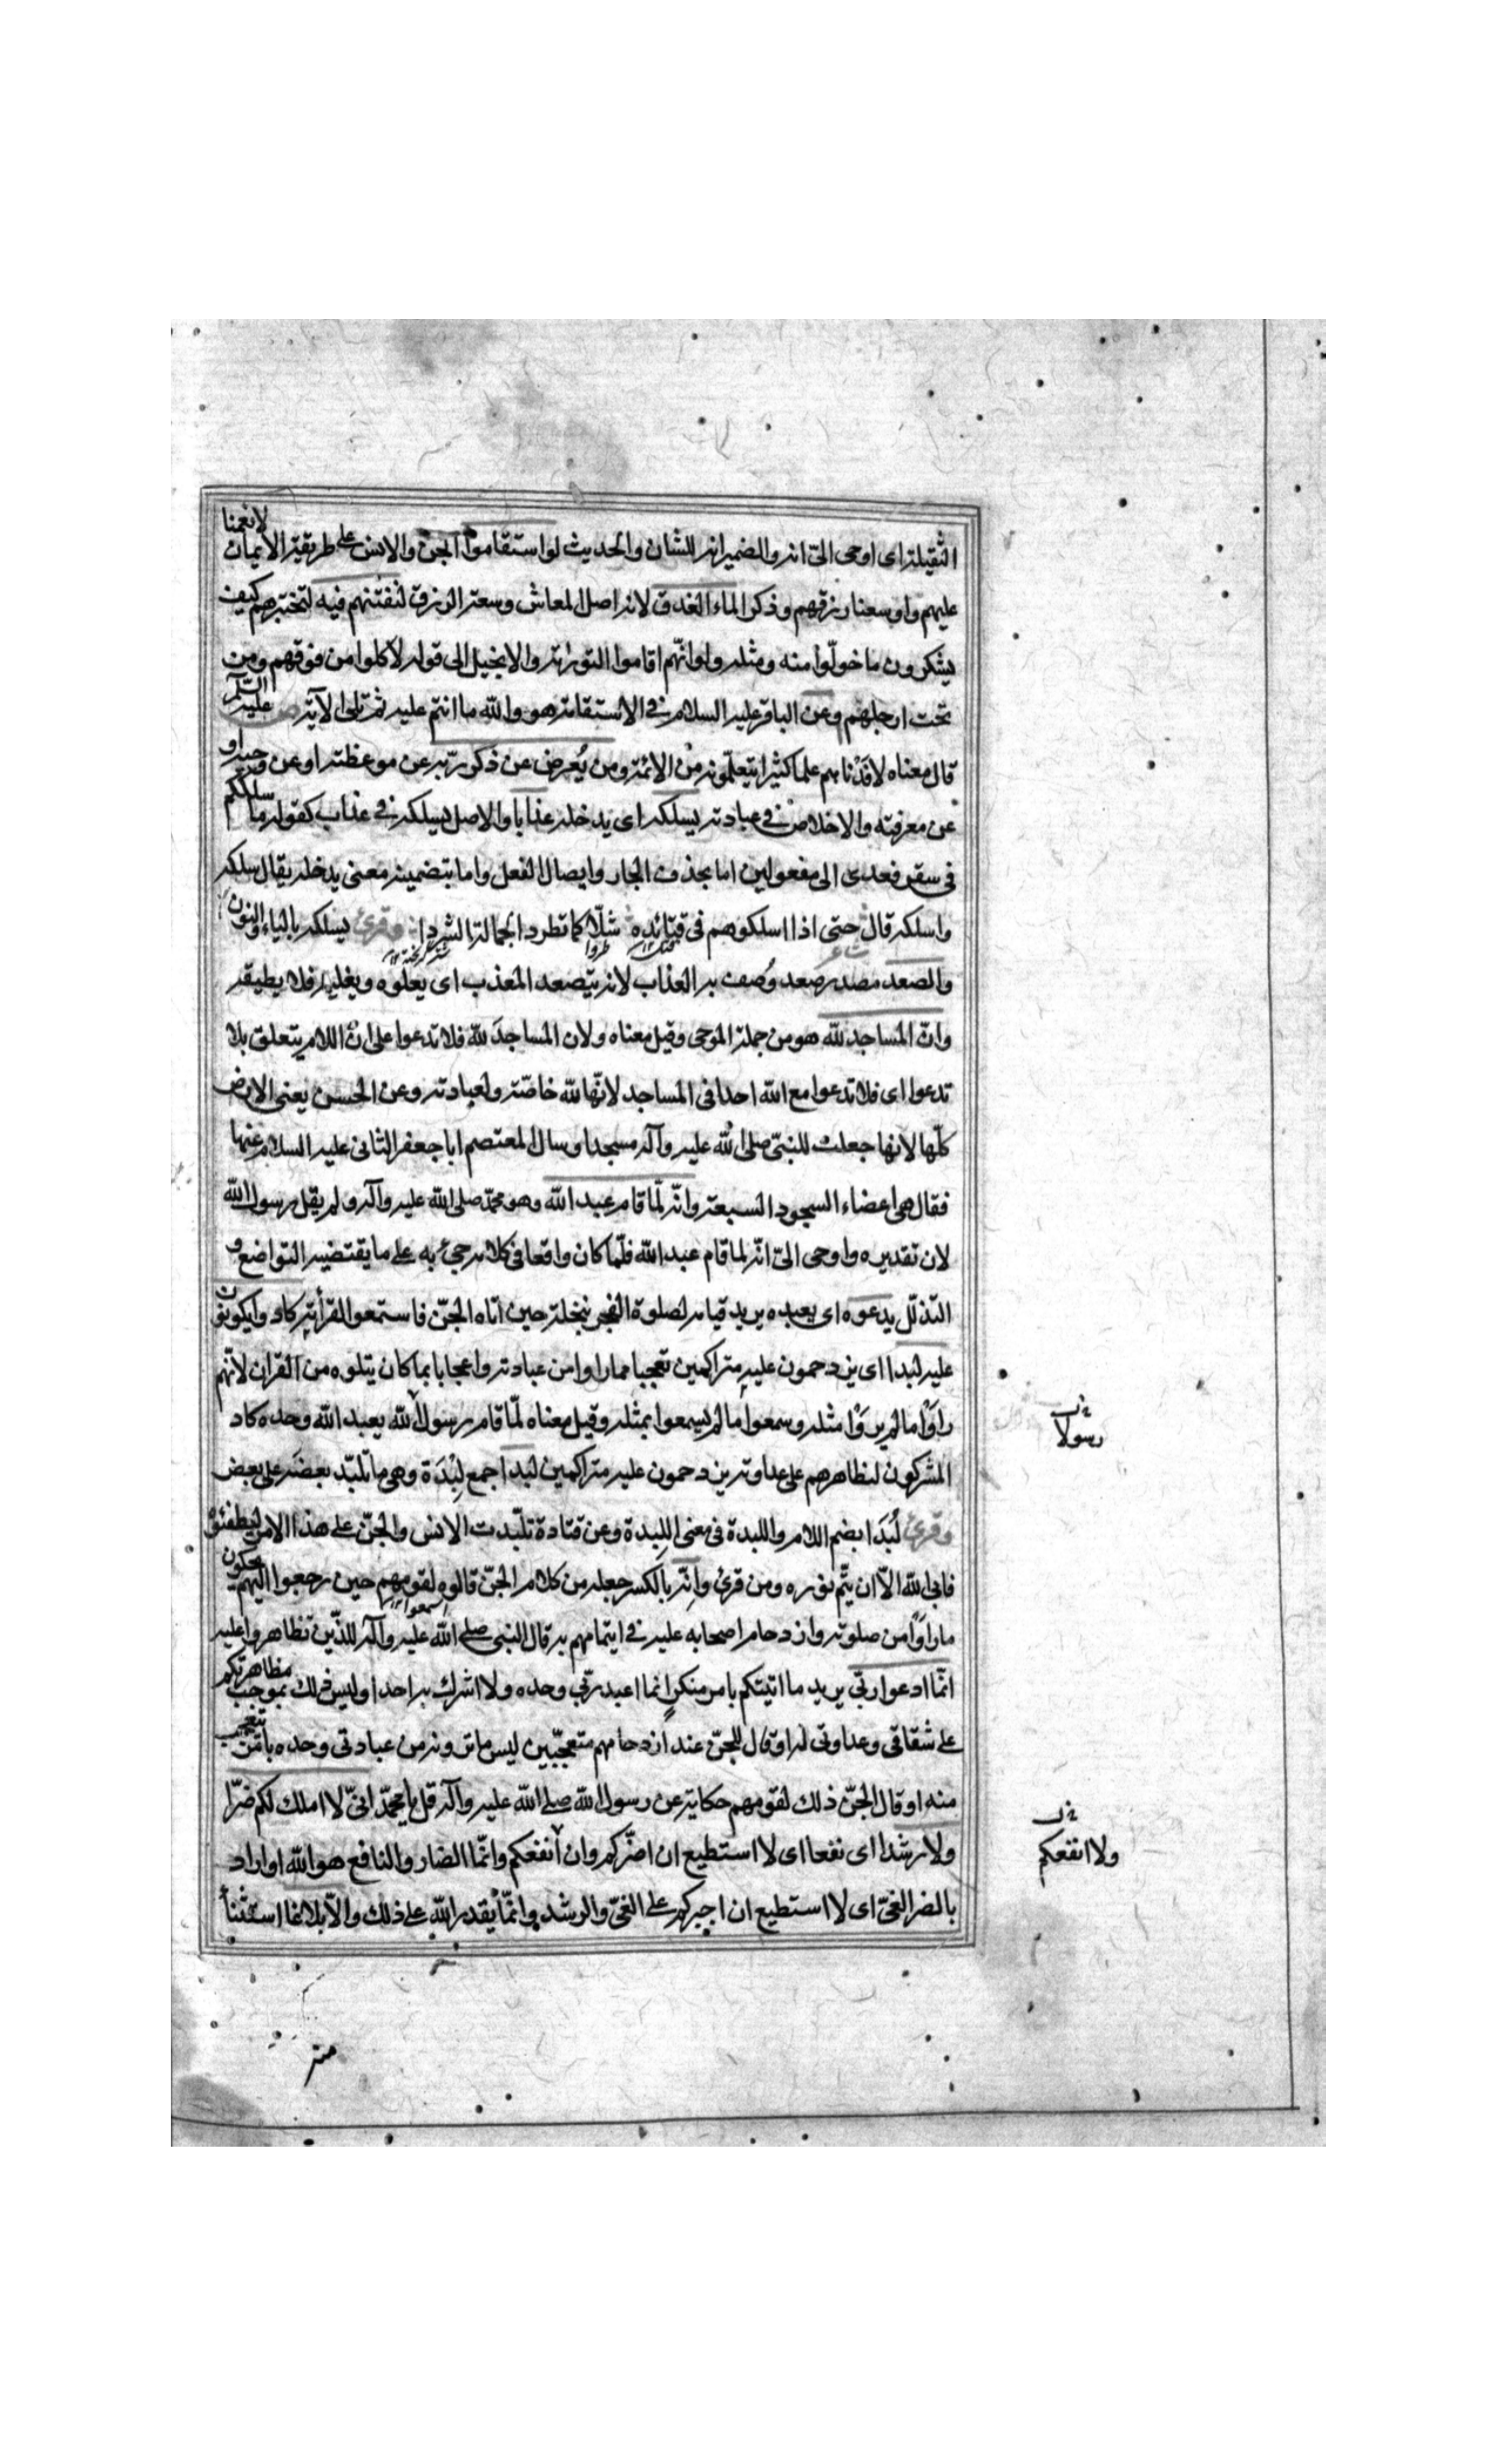 الثقيلة اى اوحى الىّ انه والضمير انه للشان والحديث لو استقاموا الجن والانس على طريقة الايمان لانعمنا
عليهم واوسعنا رزقهم وذكر الماء الغدق لانه اصل المعاش وسعة الرزق لنفتنهم فيه لنختبرهم كيف
يشكرون ما خوّلوا منه ومثله ولو انّهم اقاموا التورية والانجيل الى قوله لاكلوا من فوقهم ومن
تحت ارجلهم وعن الباقر عليه السلام فى الاستقامة هو والله ما انتم عليه ثم تلى الآية عليه السلم
قال معناه لافدناهم علما كثيرا يتعلّمونه من الائمة ومن يُعرض عن ذكر ربّه عن موعظته او عن وحيه او
عن معرفته والاخلاص فى عبادته يسلكه اى يدخله عذابا والاصل يسلكه فى عذاب كقوله ما سلككم
فى سقر فعدى الى مفعولين اما بحذف الجار وايصال الفعل واما بتضمينه معنى يدخله يقال سلكه
واسلكه قال حتى اذا اسلكوهم فى قتائده شلّا كما تطرد الجمالة الشردا وقرئ يسلكه بالياء والنون
شاعر طردوا
والصعد مصدر صعد وُصف به العذاب لانه يتصعد المعذب اى يعلوه ويغلبه فلا يطيقه
وانّ المساجد لله هو من جملة الموحى وقيل معناه ولان المساجدَ لله فلا تدعوا على انّ اللام يتعلق بلا
تدعوا اى فلا تدعوا مع الله احدا فى المساجد لانّها لله خاصّة ولعبادته وعن الحسن يعنى الارض
كلّها لانها جعلت للنبىّ صلى الله عليه وآله مسجدا وسال المعتصم ابا جعفر الثانى عليه السلام عنها
فقال هى اعضاء السجود السبعة وانّه لمّا قام عبد الله وهو محمّد صلى الله عليه وآله ولم يقل رسول الله
لان تقديره واوحى الىّ انّه لما قام عبد الله فلمّا كان واقعا فى كلامه جىء به على ما يقتضيه التواضع و
التذلّل يدعوه اى يعبده يريد قيامه لصلوة الفجر بنخلة حين اتاه الجنّ فاستمعوا لقرأته كادوا يكونون
عليه لبدا اى يزدحمون عليه متراكمين تعجبا مما راوا من عبادته واعجابا بما كان يتلوه من القران لانّهم
راَوْا ما لم يروْا مثله وسمعوا ما لم يسمعوا بمثله وقيل معناه لمّا قام رسولا لله يعبد الله وحده كاد
المشركون لتظاهرهم على عداوته يزدحمون عليه متراكمين لبدا جمع لِبْدَة وهى ما تلبّد بعضه على بعض
وقرئ لُبَدا بضم اللام واللبدة فى معنى اللِبدة وعن قتادة تلبّدت الانس والجنّ على هذا الامر ليطفئوه
فابى الله الّا ان يتّم نوره ومن قرئ وانّه بالكسر جعله من كلام الجنّ قالوه لقومهم حين رجعوا اليهم يحكون
ما راَوْا من صلوته وازدحام اصحابه عليه فى ايتمامهم به قال النبى صلى الله عليه وآله للذّين تظاهروا عليه
انّما ادعوا ربّى يريد ما اتيتكم بامر منكر انما اعبد ربّى وحده ولا اشرك به احدا وليس ذلك بموجب مظاهرتكم
على شقاقى وعداوتى له او قال للجنّ عند ازدحامهم متعجّبين ليس ما ترونه من عبادتى وحده بامر يتعجب
منه او قال الجنّ ذلك لقومهم حكاية عن رسول الله صلى الله عليه وآله قل يا محمّد انىّ لا املك لكم ضرّا
ولا رشدا اى نفعا اى لا استطيع ان اضرّكم وان انفعكم وانّما الضار والنافع هو الله او اراد
بالضر الغىّ اى لا استطيع ان اجبركم على الغىّ والرشد وانّما يقدر الله على ذلك والّا بلاغا استثنأ
رسولا
ولا انفعكم